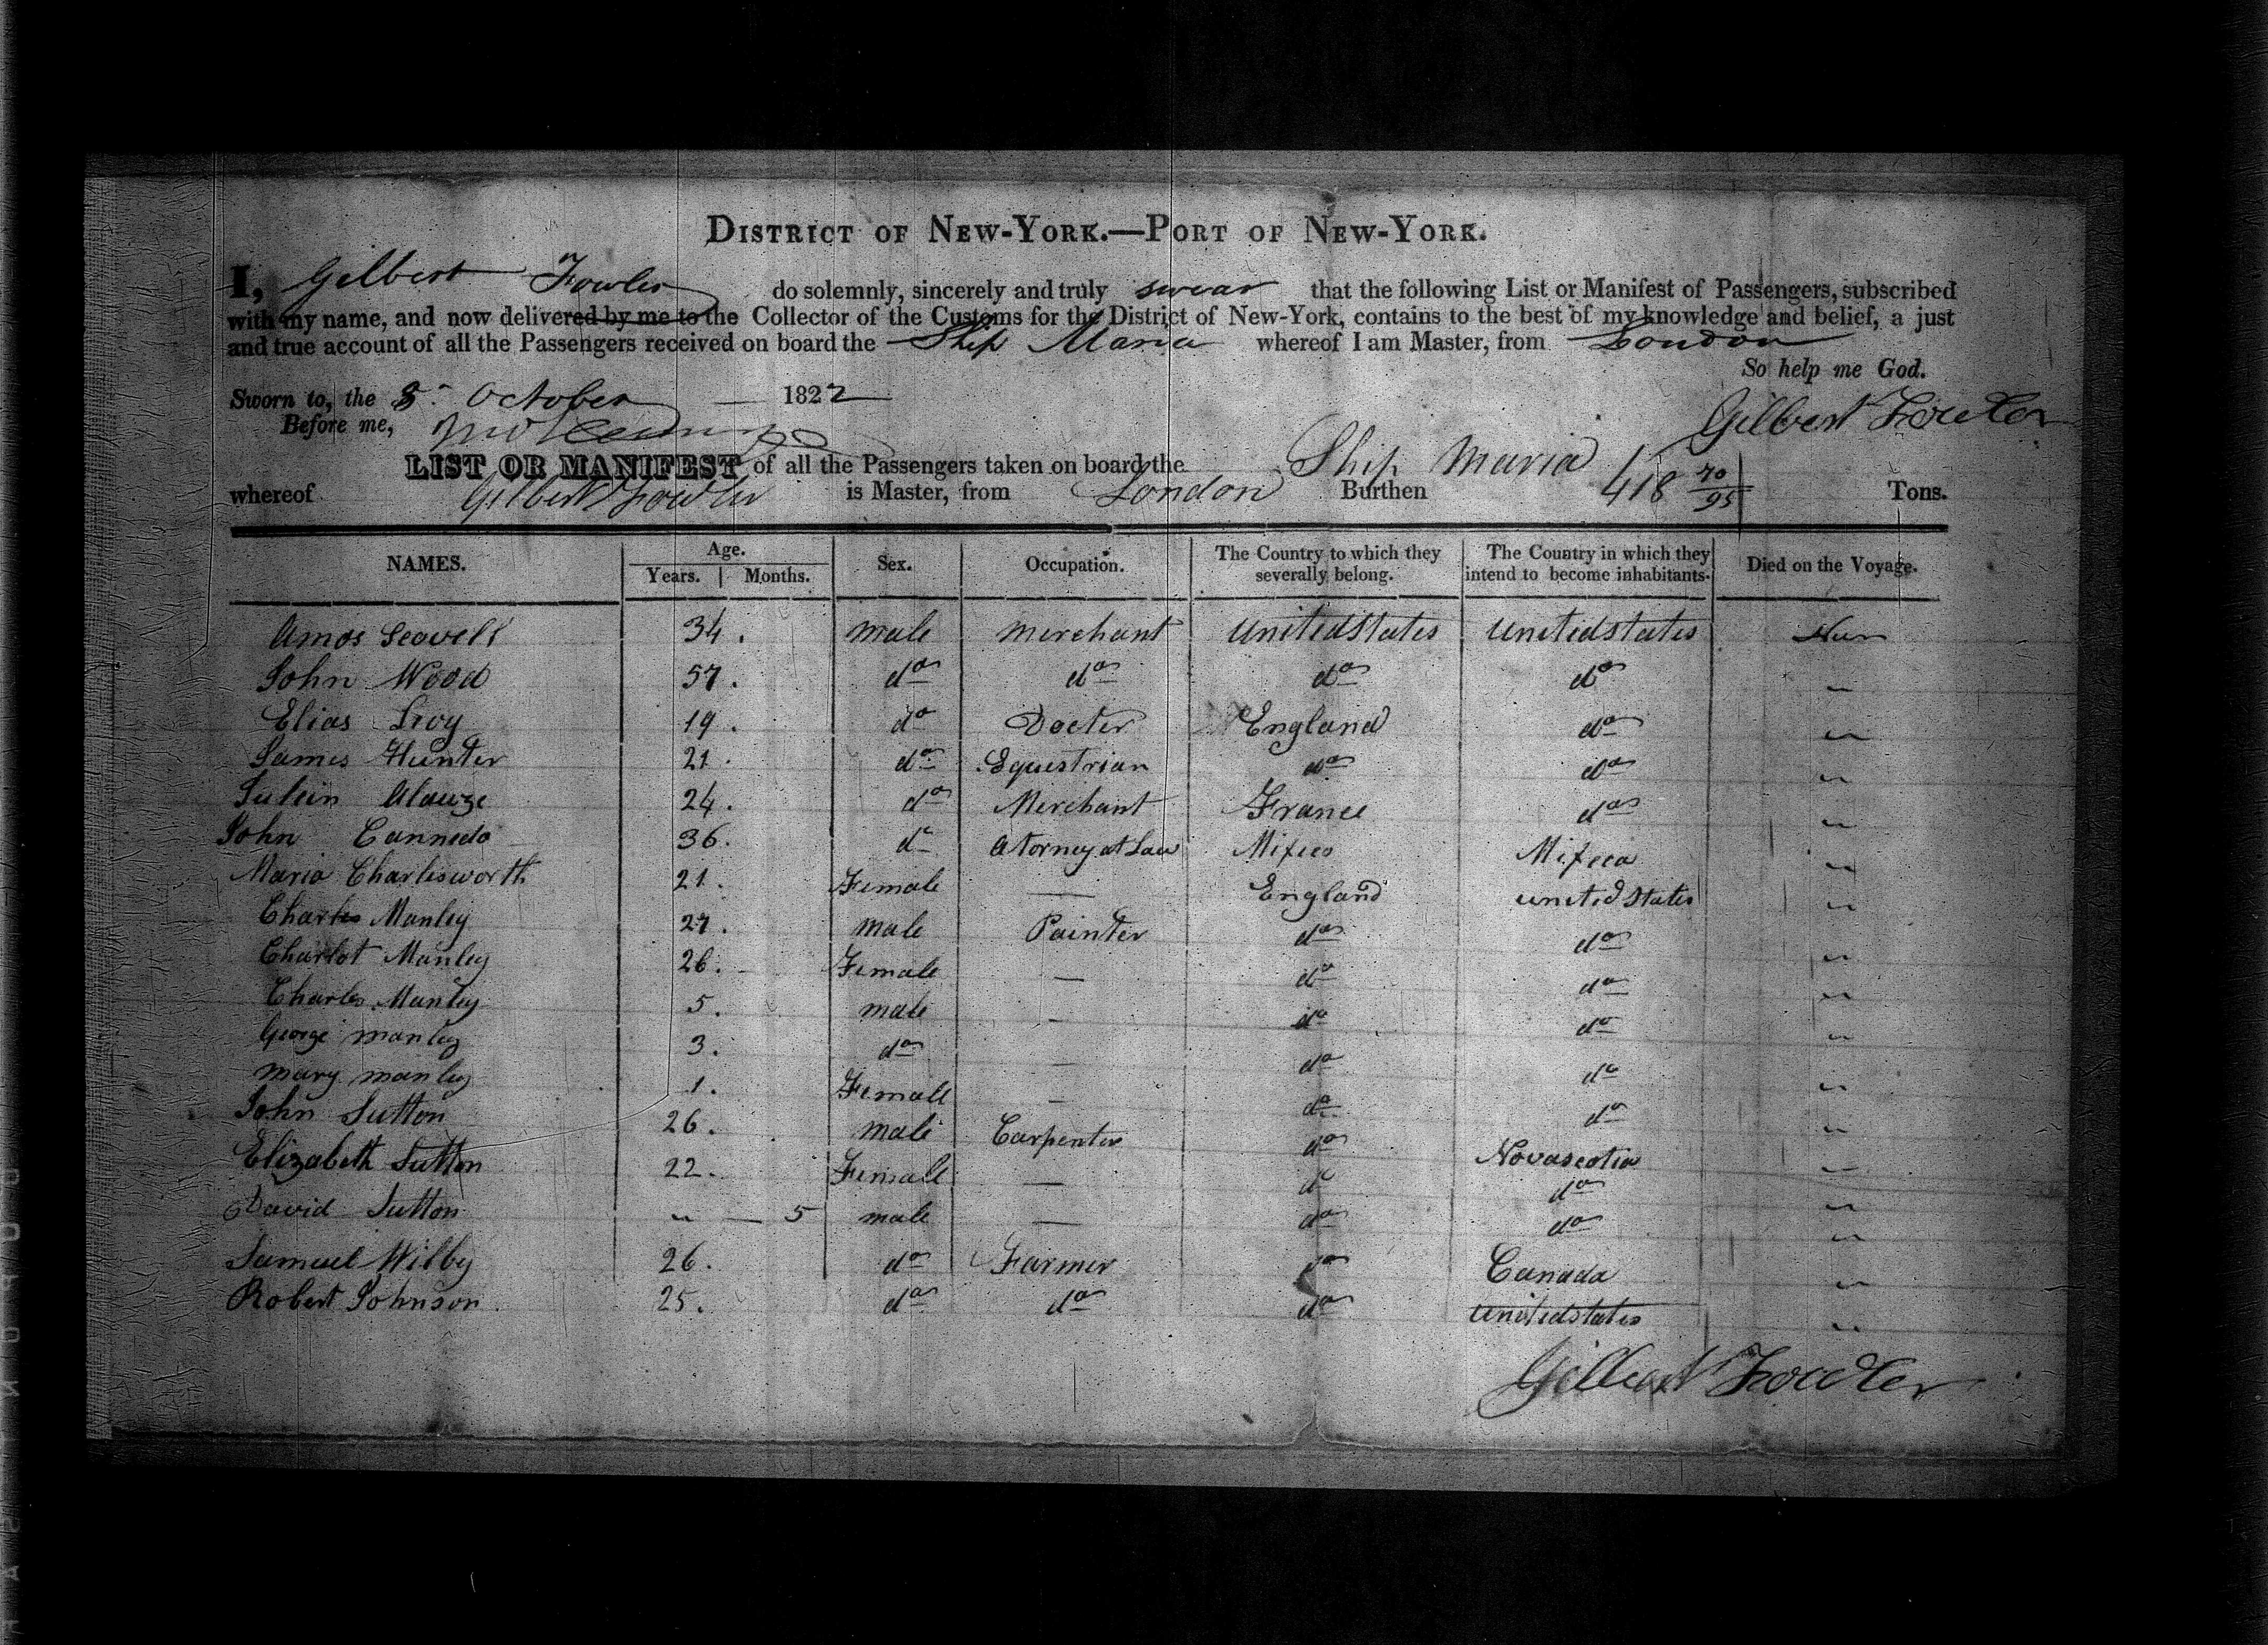 DISTRICT OF NEW-YORK.—PORT OF NEW-YORK.
I, Gilbert Fowler do solemnly, sincerely and truly swear that the following List or Manifest of Passengers, subscribed
with my name, and now delivered by me to the Collector of the Customs for the District of New-York, contains to the best of my knowledge and belief, a just
and true account of all the Passengers received on board the Ship Maria whereof I am Master, from London
So help me God.
Sworn to, the October 1822
Gilbert Fowler
Before me,
LIST OR MANIFEST of all the Passengers taken on board the Ship Maria
whereof Gilbert Fowler is Master, from London Burthen 418 70/95 Tons.
NAMES. Age. Years. Months. Sex. Occupation. The Country to which they severally belong. The Country in which they intend to become inhabitants. Died on the Voyage.
Amos 34. male Merchant United States United States
John Wood 57. do do do do "
Elias 19. do Docter England do "
James Hunter 21. do Equestrian do do "
Julein 24. do Merchant France do "
John Cannedo 36. do Atorney at Law Mexeco Mexeca "
Maria Charlesworth 21. Female — England United States "
Charles Manley 27. male Painter do do "
Charlot Manley 26. Female — do do "
Charles Manley 5. male — do do "
George Manley 3. do — do do "
Mary Manley 1. Female — do do "
John Sutton 26. male Carpenter do Novascotia "
Elizabeth Sutton 22. Female — do do "
David Sutton " — 5 male — do do "
Samuel Wilby 26. do Farmer do Canada "
Robert Johnson 25. do do do United States "
Gilbert Fowler